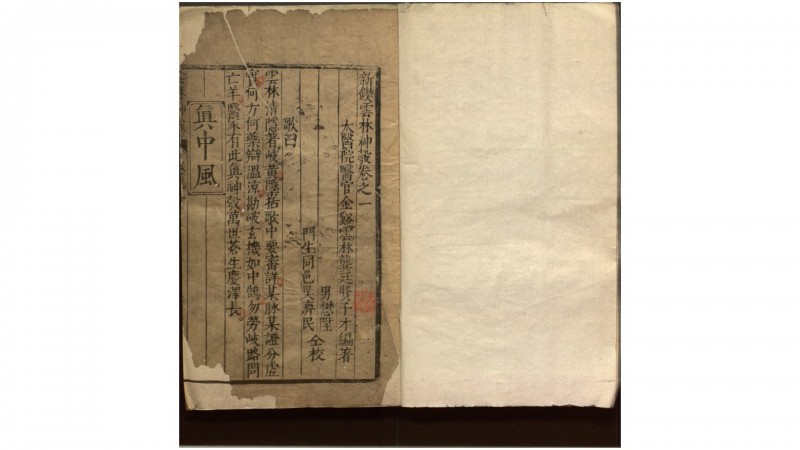 新鍥雲林神彀卷之一
太醫院醫官金谿雲林龔廷賢子才編著
男懋陞
門生同邑吳濟民
仝校
歌曰
雲林清隱著岐黃隱栝歌中要審詳某脉某證分虛
實何方何藥辯溫涼勘破玄機如中鵠勿勞岐路問
亡羊醫家有此眞神彀萬世蒼生慶澤長
眞中風